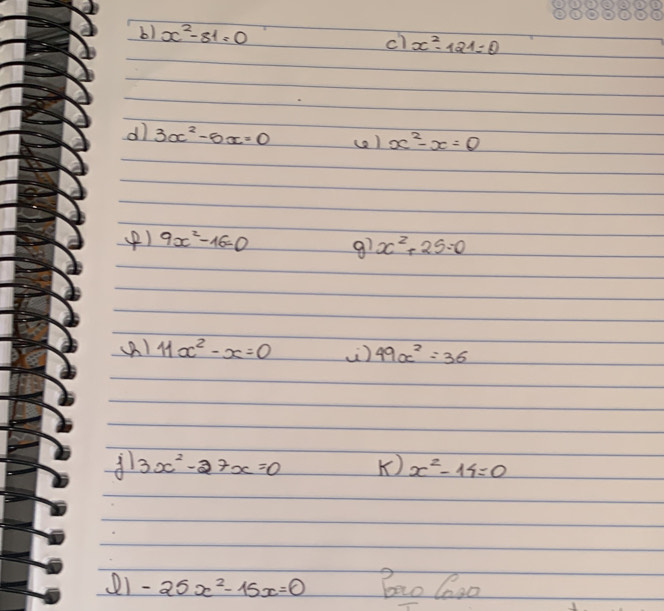 b) x²-81=0 c) x²-121=0
d) 3x²-5x=0 e) x²-x=0
f) 9x²-16=0 g) x²+25=0
h) 11x²-x=0 i) 49x²=36
j) 3x²-27x=0 K) x²-14=0
l) -25x²-15x=0 Para Casa